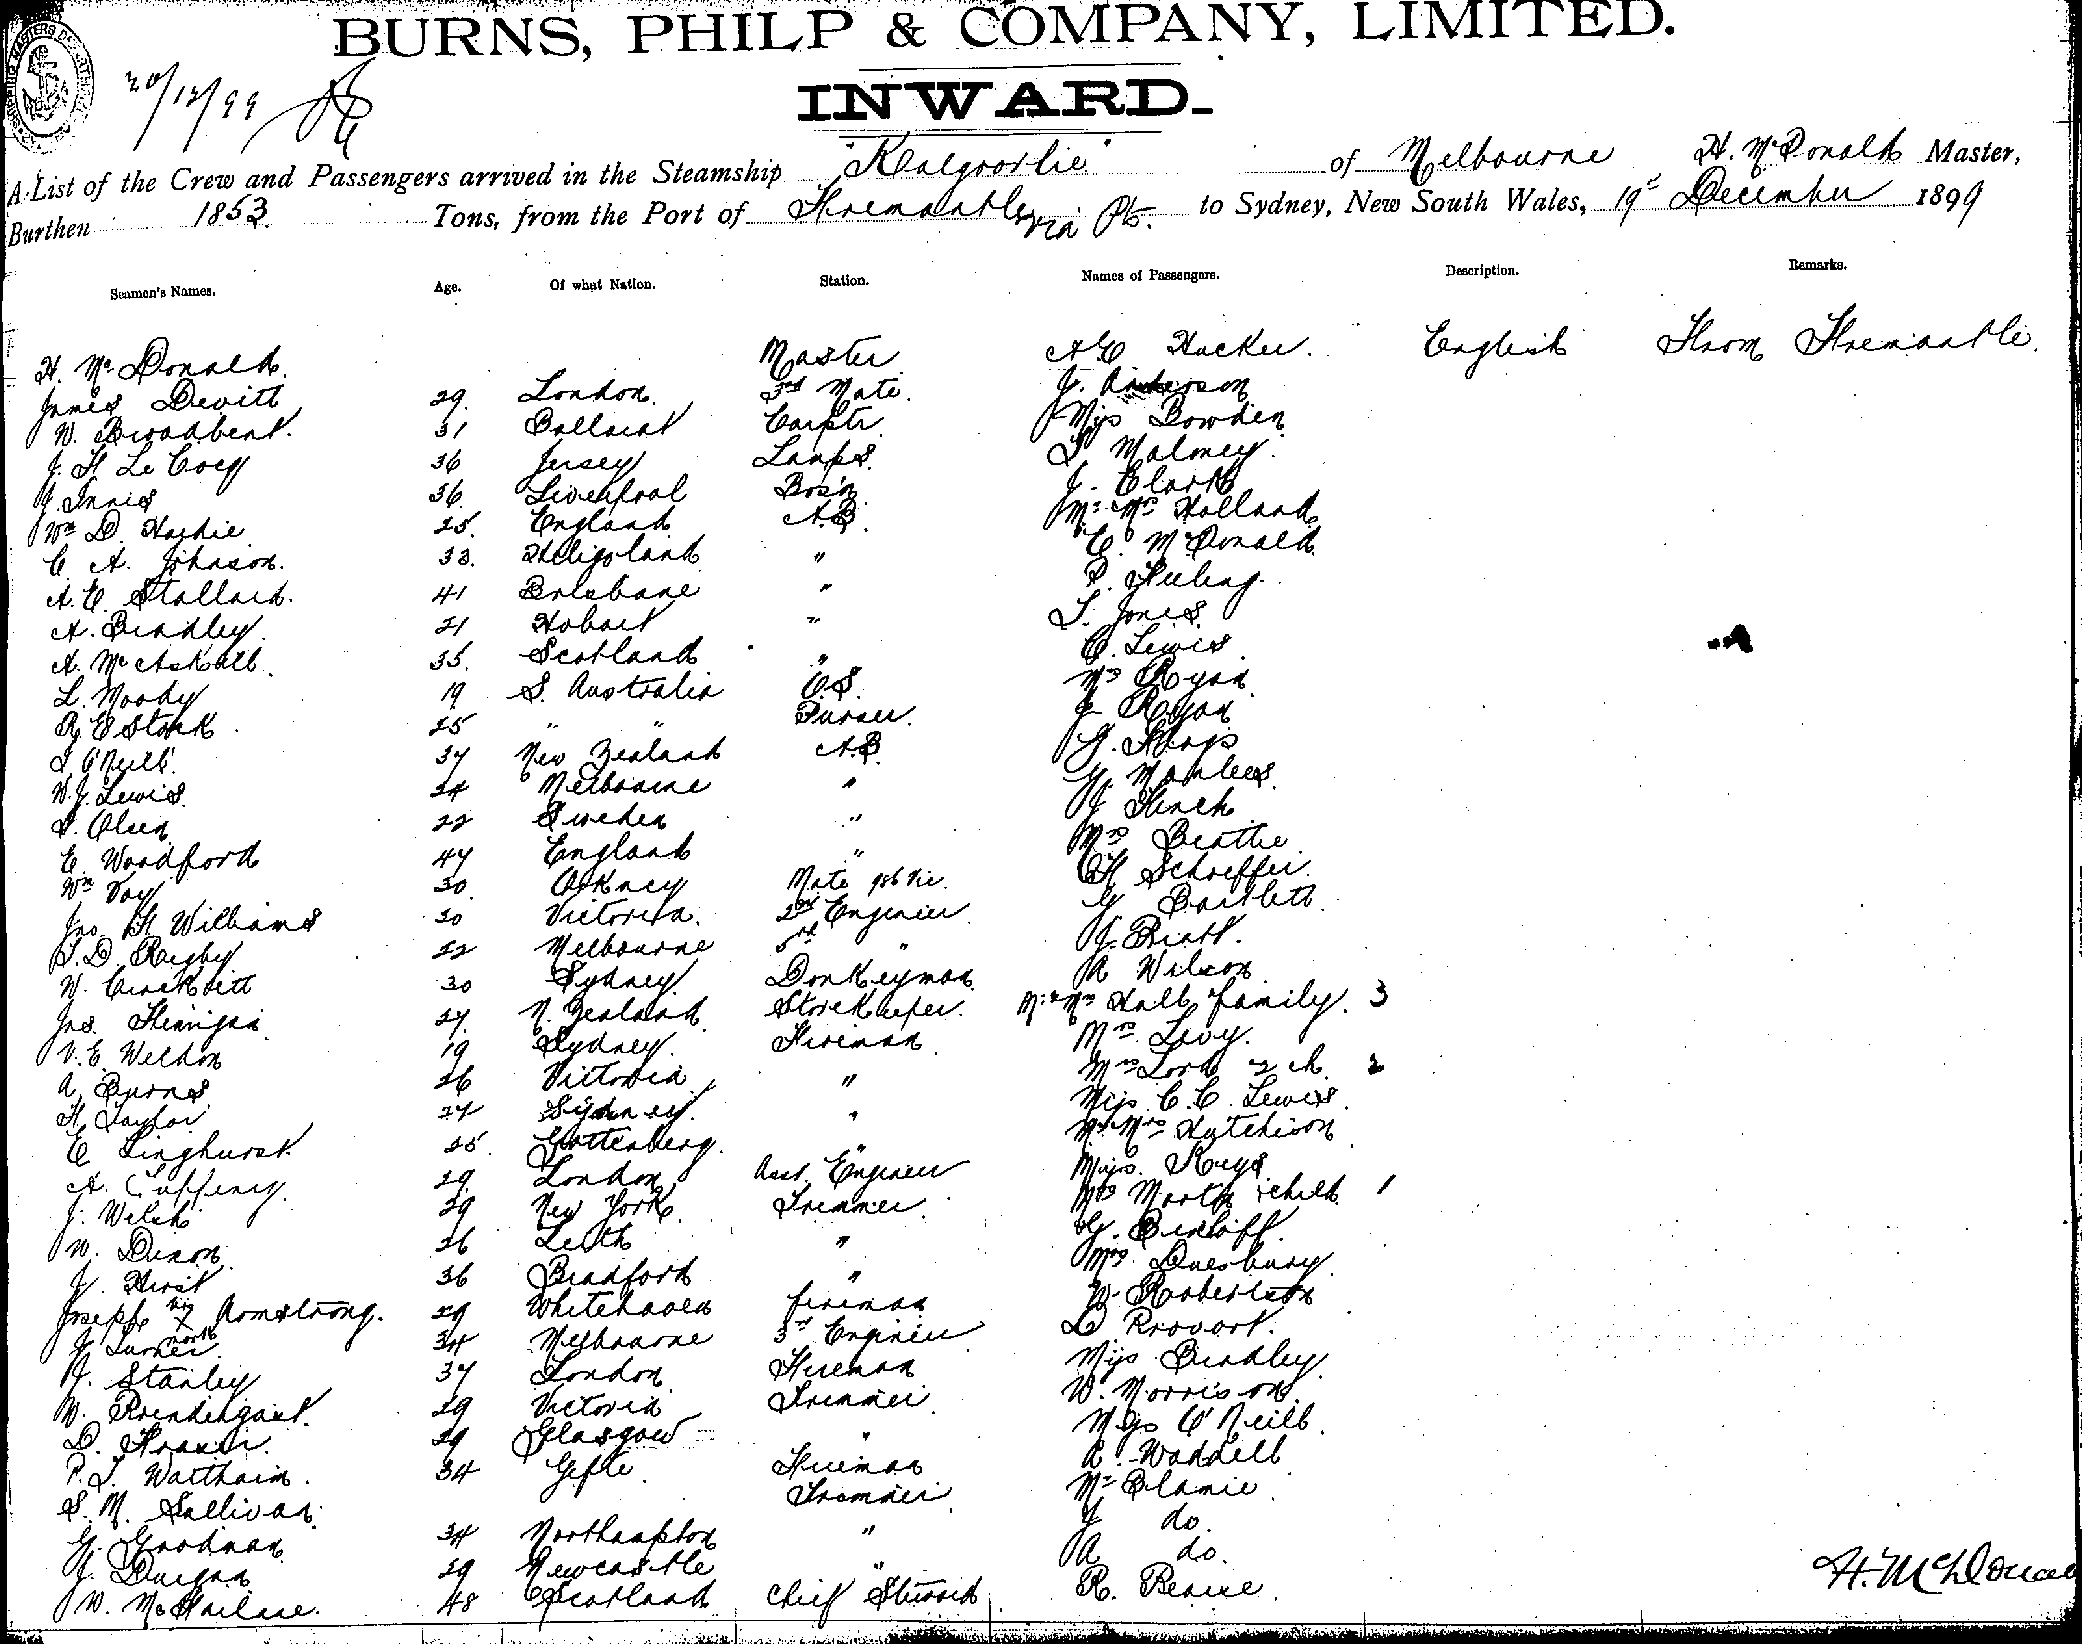 BURNS, PHILP & COMPANY, LIMITED.
20/12/99
INWARD.
A List of the Crew and Passengers arrived in the Steamship "Kalgoorlie" of Melbourne H. McDonald Master,
Burthen 1853 Tons, from the Port of Fremantle via Pts. to Sydney, New South Wales, 19th December 1899
Seamen's Names. Age. Of what Nation. Station. Names of Passengers. Description. Remarks.
H. McDonald Master A E Hacker. English From Fremantle.
James Devitt 29 London 3rd Mate J. Anderson
W. Broadbent. 31 Ballarat Carptr Miss Bowden
J. H Le Cocq 36 Jersey Lamps. Moloney
J. Innes 36 Liverpool Bos'n J. Clark
Wm D. Hachie 25 England A.B. Mr Mrs Holland
C. A. Johnson. 33. Heligoland " C. McDonald
A. E. Stallard. 41 Brisbane " P.
A. Bradley 21 Hobart " Jones
A. McAskill 35. Scotland " C. Lewis
L. Moody 19 S. Australia O.S. Mrs Ryan
R. E Stark 25 " " Purser. J Ryan
O'Neill 37 New Zealand A.B.
W. J. Lewis 24 Melbourne "
Olsen 22 Sweden " J Finch
C. Woodford 47 England " Mrs Beattie
Wm Voy 30 Orkney Mate H Schaeffer
Jno H Williams 30 Victoria. 2nd Engineer G Bartlett
Rigby 22 Melbourne 5th " J. Pratt.
W. 30 Sydney Donkeyman A Wilson
Jas. 27 N. Zealand Storekeeper. Mr & Mrs Hall family. 3
V. E. Weldon 19 Sydney Fireman Mrs Levy.
A. Burns 26 Victoria " Mrs Lord 2 ch. 2
H Taylor 27 Sydney. " Miss C. C. Lewis
E Linghurst 25 Gottenberg " Mr Mrs Hutchison
A. 29 London Asst. Engineer Keys
J. Welsh 29 New York. Trimmer Mrs & child 1
W. Dixon 26 Leith " G.
J. Hirst 36 Bradford " Mrs Duesbury
Joseph his x mark Armstrong. 29 Whitehaven fireman W. Robertson
J Turner 34 Melbourne 3rd Engineer D Provost.
J. Stanley 37 London Fireman Miss Bradley
W. Prendergast. 29 Victoria Trimmer W. Morrison
D. Fraser. 29 Glasgow " O'Neill
P. J. 34 Gefle Fireman A. Waddell
S. M. Sullivan. Trimmer
G. Goodman 34 Northampton " J do.
J. Durgan 29 Newcastle " A do.
W. McFarlane. 48 Scotland chief Steward R. Pearce
H. McDonald